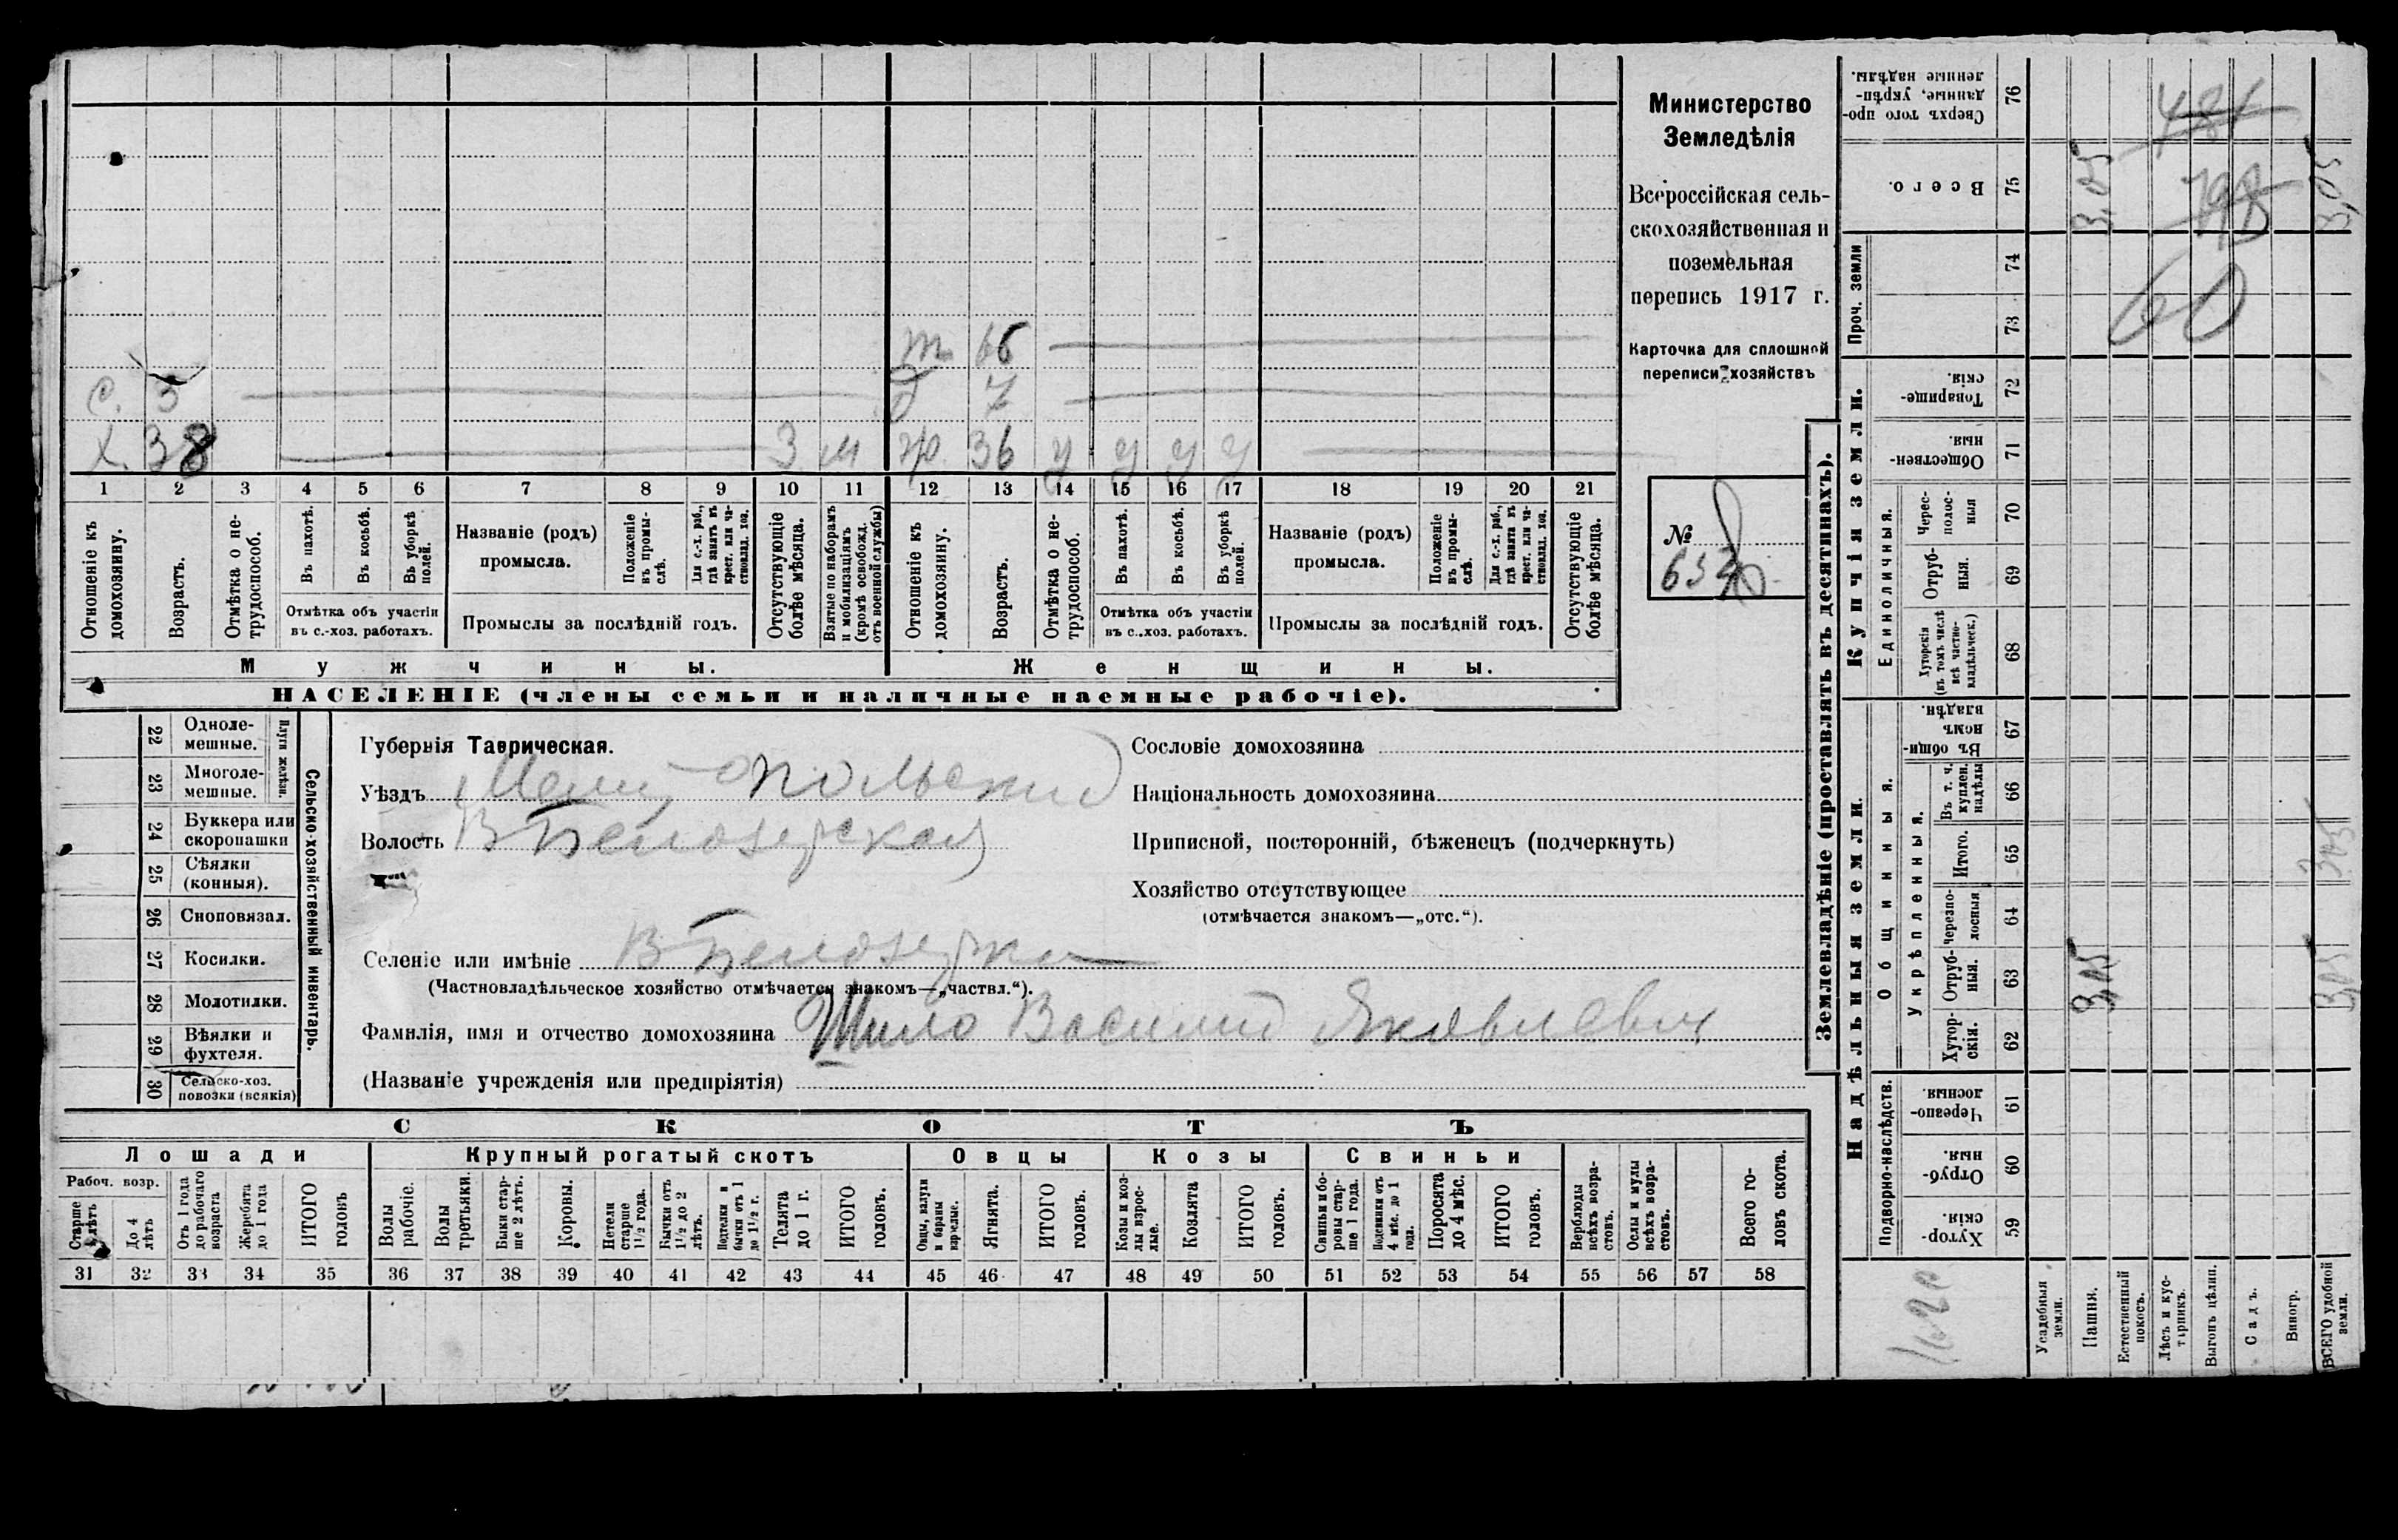 т. 66
с. 3 д 7
х. 38 3 м ж. 36 у у у у
1 2 3 4 5 6 7 8 9 10 11 12 13 14 15 16 17 18 19 20 21
Отношеніе къ домохозяину.
Возрастъ.
Отмѣтка о нетрудоспособ.
Въ пахотѣ.
Въ косьбѣ.
Въ уборкѣ полей.
Отмѣтка объ участіи
въ с.-хоз. работахъ.
Названіе (родъ)
промысла.
Положеніе въ промыслѣ.
Для с.-х. раб., гдѣ занятъ въ крест. или частновлад. хоз.
Промыслы за послѣдній годъ.
Отсутствующіе болѣе мѣсяца.
Взятые по наборамъ и мобилизаціямъ (кромѣ освобожд. отъ военной службы)
Отношеніе къ домохозяину.
Возрастъ.
Отмѣтка о нетрудоспособ.
Въ пахотѣ.
Въ косьбѣ.
Въ уборкѣ полей.
Отмѣтка объ участіи
въ с.-хоз. работахъ.
Названіе (родъ)
промысла.
Положеніе въ промыслѣ.
Для с.-х. раб., гдѣ занята въ крест. или частновлад. хоз.
Промыслы за послѣдній годъ.
Отсутствующіе болѣе мѣсяца.
Мужчины. Женщины.
НАСЕЛЕНІЕ (члены семьи и наличные наемные рабочіе).
Министерство
Земледѣлія
Всероссійская сель-
скохозяйственная и
поземельная
перепись 1917 г.
Карточка для сплошной
переписи хозяйствъ
№
Сельско-хозяйственный инвентарь.
Плуги желѣзн.
22 Одноле-
мешные.
23 Многоле-
мешные.
24 Буккера или
скоропашки
25 Сѣялки
(конныя).
26 Сноповязал.
27 Косилки.
28 Молотилки.
29 Вѣялки и
фухтеля.
30 Сельско-хоз.
повозки (всякія)
Губернія Таврическая.
Уѣздъ Мелитопольский
Волость В Белозерская
Селеніе или имѣніе В Белозерка
(Частновладѣльческое хозяйство отмѣчается знакомъ—„частвл.“).
Фамилія, имя и отчество домохозяина Шило Василий Яковлевич
(Названіе учрежденія или предпріятія)
Сословіе домохозяина
Національность домохозяина
Приписной, посторонній, бѣженецъ (подчеркнуть)
Хозяйство отсутствующее
(отмѣчается знакомъ—„отс.“).
СКОТЪ
Лошади Крупный рогатый скотъ Овцы Козы Свиньи
Рабоч. возр.
Старше 4 лѣтъ
До 4 лѣтъ
Отъ 1 года до рабочаго возраста
Жеребята до 1 года
ИТОГО головъ
Волы рабочіе.
Волы третьяки.
Быки старше 2 лѣтъ.
Коровы.
Нетели старше 1 1/2 года.
Бычки отъ 1 1/2 до 2 лѣтъ.
Подтелки и бычки отъ 1 до 1 1/2 г.
Телята до 1 г.
ИТОГО головъ.
Овцы, валухи и бараны взрослые.
Ягнята.
ИТОГО головъ.
Козы и козлы взрослые.
Козлята
ИТОГО головъ.
Свиньи и боровы старше 1 года.
Подсвинки отъ 4 мѣс. до 1 года.
Поросята до 4 мѣс.
ИТОГО головъ.
Верблюды всѣхъ возрастовъ.
Ослы и мулы всѣхъ возрастовъ.
Всего головъ скота.
31 32 33 34 35 36 37 38 39 40 41 42 43 44 45 46 47 48 49 50 51 52 53 54 55 56 57 58
Землевладѣніе (проставлять въ десятинахъ).
Надѣльныя земли. Купчія земли.
Подворно-наслѣдств. Общинныя. Единоличныя. Проч. земли
Укрѣпленныя.
Сверхъ того проданные, укрѣпленные надѣлы. 76
Всего. 75 3,05 3,05
74
73
60
Товарищескія. 72
Общественныя. 71
Черес-полосныя 70
Отрубныя. 69
Хуторскія (въ томъ числѣ всѣ частновладѣльческ.) 68
Въ общинномъ владѣн. 67
Въ т. ч. куплен. надѣлы 66
Итого. 65 3,05
Черезполосныя 64
Отрубныя. 63 3,05 3,05
Хуторскія. 62
Черезполосныя. 61
Отрубныя. 60
Хуторскія. 59
Усадебныя земли.
Пашня.
Естественный покосъ.
Лѣсъ и кустарникъ.
Выгонъ цѣлин.
Садъ.
Виногр.
ВСЕГО удобной земли.